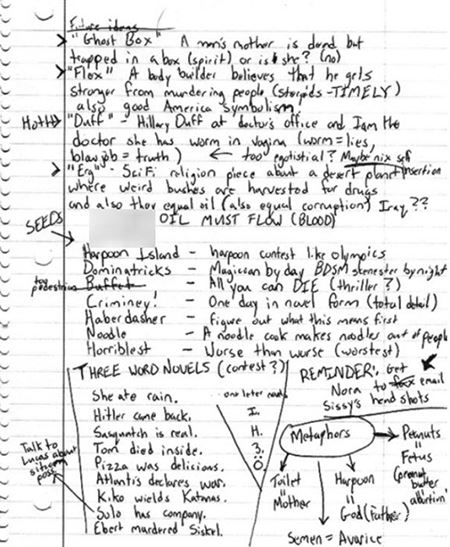 Future ideas
"Ghost Box" A man's mother is dead but
trapped in a box (spirit) or is she? (no)
"Flex" A body builder believes that he gets
stronger from murdering people (steroids-TIMELY)
also good America symbolism,
Hott! "Duff" - Hillary Duff at doctor's office and I am the
doctor she has worm in vagina (worm = lies,
blowjob = truth) ← too egotistial? Maybe nix self
insertion
"Erg" - SciFi religion piece about a desert planet
where weird bushes are harvested for drugs
and also they equal oil (also equal corruption) Iraq??
OIL MUST FLOW (BLOOD)
SEEDS
Harpoon Island - harpoon contest like olympics
Dominatricks - Magician by day BDSM scenester by night
too pedestrian Buffet - All you can DIE (thriller?)
Criminey! - One day in novel form (total detail)
Haberdasher - Figure out what this means first
Noodle - A noodle cook makes noodles out of people
Horriblest - Worse than worse (worstest)
THREE WORD NOVELS (contest?)
She ate rain.
Hitler came back.
Sasquatch is real.
Tom died inside.
Pizza was delicious.
Atlantis declares war.
Kiko wields Katanas.
Solo has company.
Ebert murdered Siskel.
Talk to
Lucas about
poss.
one letter
I.
H.
3.
Ö.
REMINDER: Get
Nora to fax email
Sissy's head shots
Metaphors
Peanuts
=
Fetus
(peanut
butter
abortion)
Toilet
=
Mother
Harpoon
=
God (Father)
Semen = Avarice